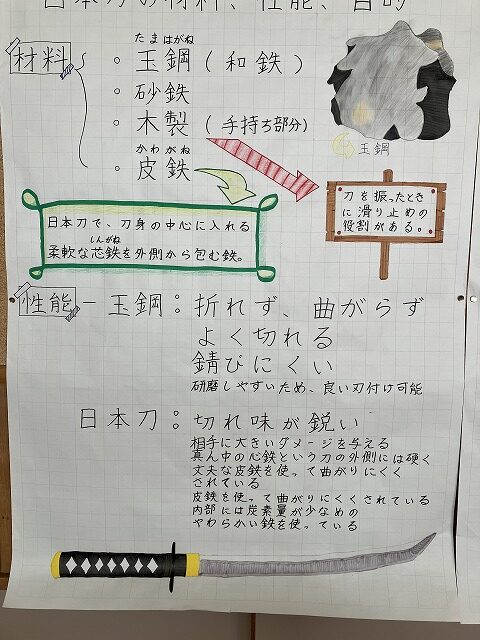 日本刀の材料、性能、目的
材料
。玉鋼(和鉄)
たまはがね
。砂鉄
。木製(手持ち部分)
。皮鉄
かわがね
玉鋼
刀を振ったとき
に滑り止めの
役割がある。
日本刀で、刀身の中心に入れる
柔軟な芯鉄を外側から包む鉄。
しんがね
性能
ー玉鋼:折れず、曲がらず
よく切れる
錆びにくい
研磨しやすいため、良い刃付け可能
日本刀:切れ味が鋭い
相手に大きいダメージを与える
真ん中の心鉄という刀の外側には硬く
丈夫な皮鉄を使って曲がりにくく
されている
皮鉄を使って曲がりにくくされている
内部には炭素量が少なめの
やわらかい鉄を使っている